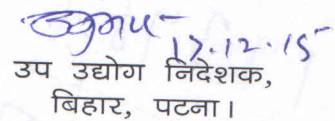 17.12.15
उप उद्योग निदेशक,
बिहार, पटना।